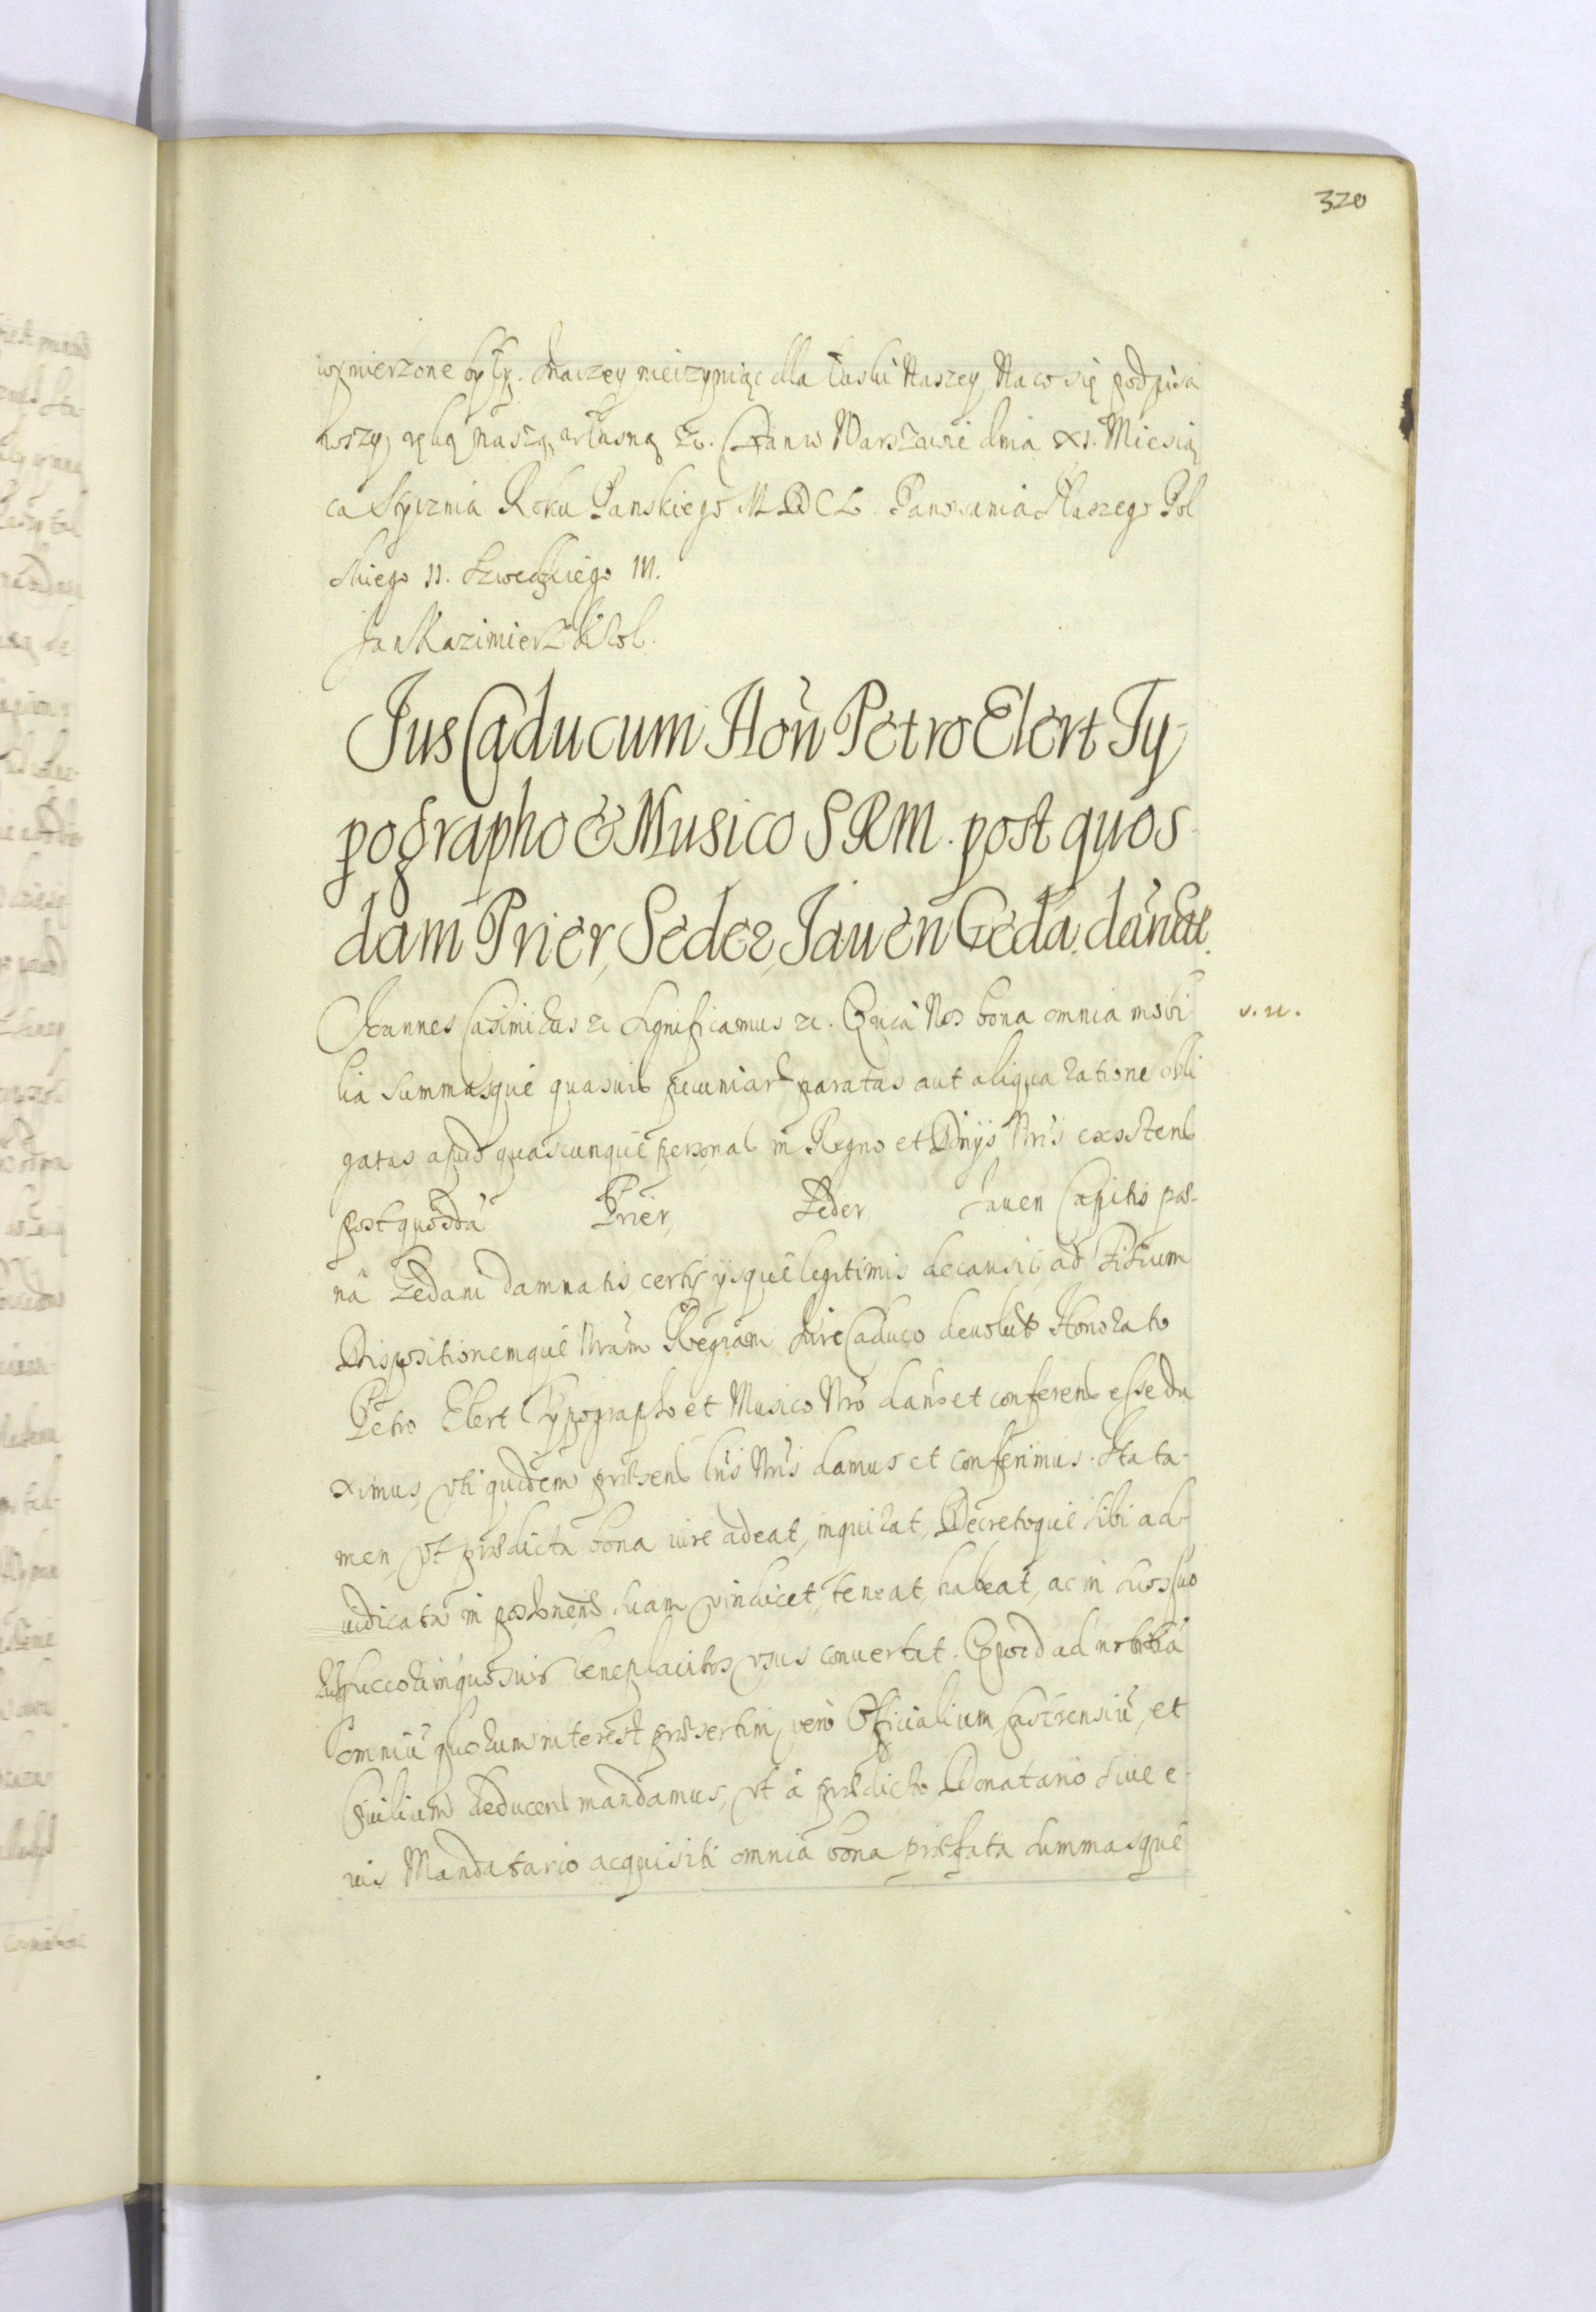 320
wymierzone były. Inaczey nieczyniąc dla łaski Naszey, Na co się podpisa
wszy, ręką naszą własną &c. Dan w Warszawie dnia XI. Miesią
ca Stycznia Roku Panskiego MDCL. Panowania Naszego Pol
skiego II. Szwedzkiego III.
Jan Kazimierz Krol.
Jus Caducum Hon Petro Elert Ty
pographo & Musico SRM. post quos
dam Prier, Seder, Jauen Geda. dānat.
Joannes Casimirus &c Significamus &c. Quia Nos bona omnia mobi
v. u.
lia summasque quasuis pecuniar paratas aut aliqua ratione obli
gatas apud quascunque personas in Regno et Dnijs Nris existens
post quosdā Prier, Seder Jauen Capitis pae-
nā Gedani damnatis, certis ijsque legitimis de causis, ad
Dispositionemque Nram Regiam Jure Caduco deuolut Honorato
Petro Elert Typographo et Musico Nro dans et conferens esse du
ximus, vti quidem praesens lris Nris damus et conferimus. Ita ta-
men, vt praedicta bona iure adeat, inquirat, Decretoque sibi ad-
iudicata in possnem suam vindicet, teneat, habeat, ac in suos suo
beneplacitos vsus conuertat. Quod ad notitiā
omniū quorum interest praesertim vero Officialium Castrensiū, et
Ciuilium deducens mandamus, vt à praedicto Donatario siue e-
ius Mandatario acquisiti omnia bona praefata summasque